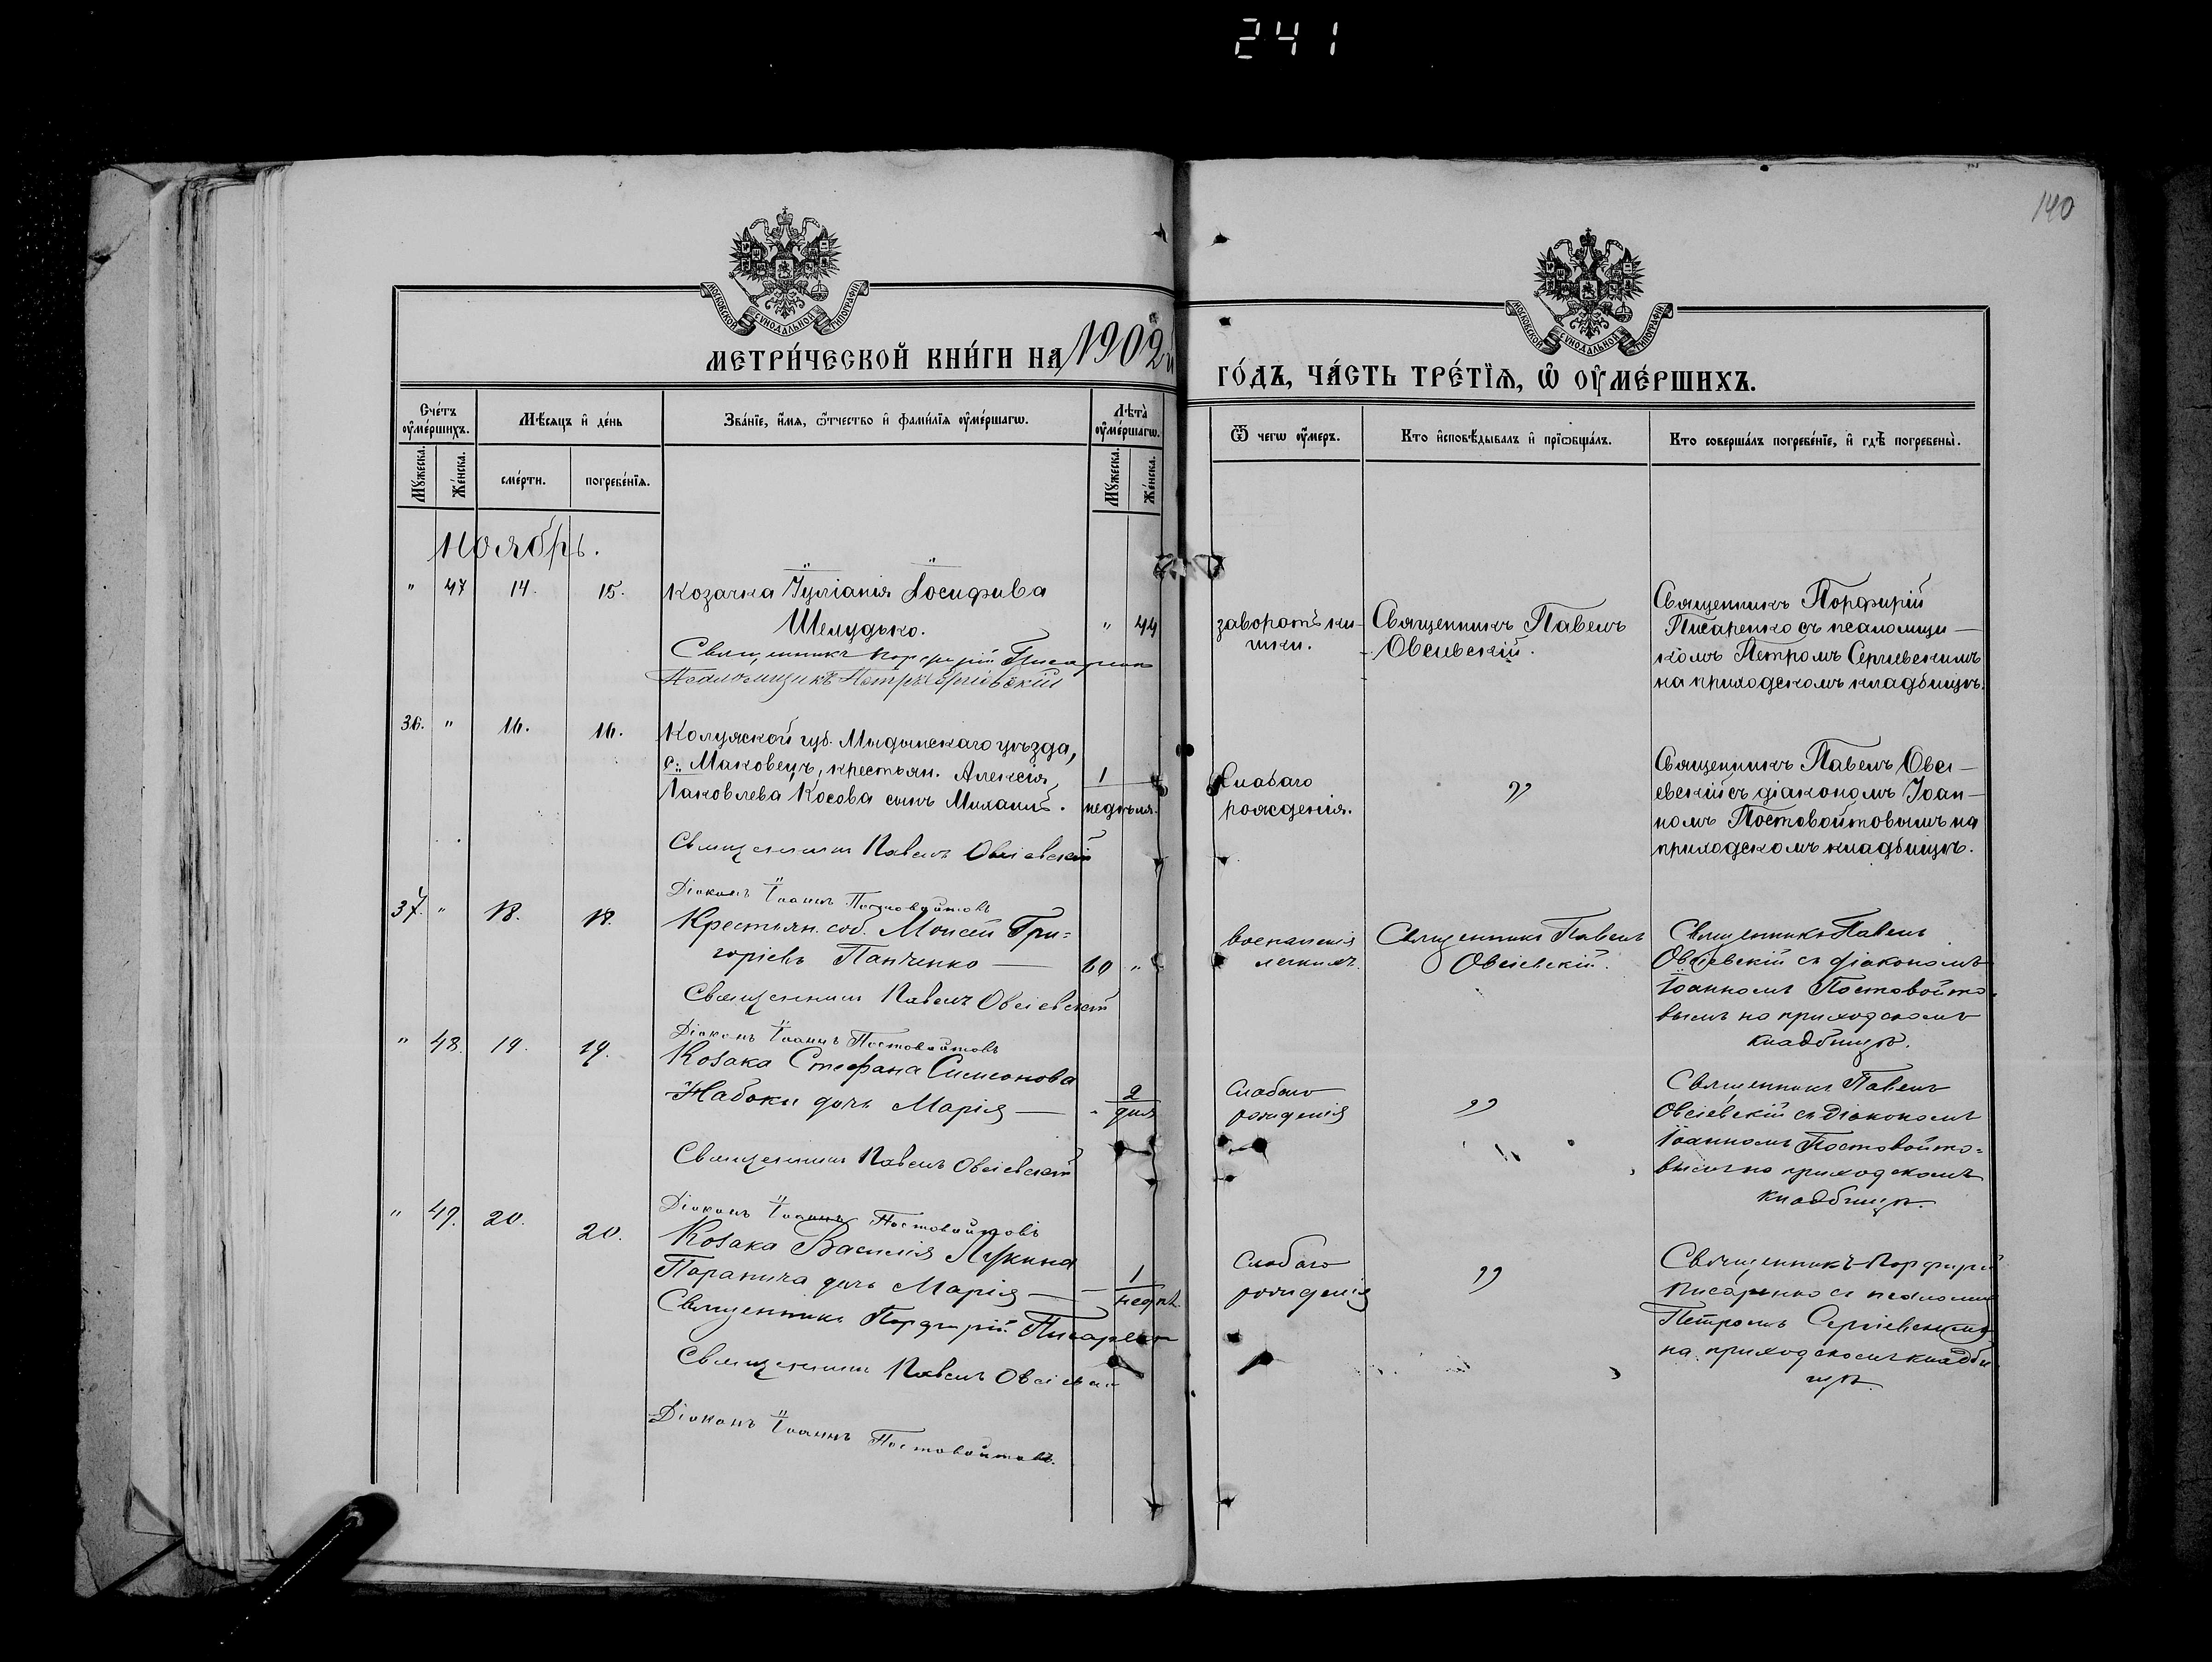 241
140
МОСКОВСКОЙ СѴНОДАЛЬНОЙ ТИПОГРАФІИ
МОСКОВСКОЙ СѴНОДАЛЬНОЙ ТИПОГРАФІИ
МЕТРИ́ЧЕСКОЙ КНИ́ГИ НА 1902
ГО́ДЪ, ЧА́СТЬ ТРЕ́ТЇѦ, Ѡ ОУМЕ́РШИХЪ.
Сче́тъ оуме́ршихъ.
Мѣ́сяцъ и де́нь
Зва́нїе, и́мя, ѻ҆́тчество и фами́лїя оуме́ршагѡ.
Лѣта̀ оуме́ршагѡ.
Ѿ чегѡ оу́меръ.
Кто и҆сповѣ́дывалъ и҆ прїѡбща́лъ.
Кто соверша́лъ погребе́нїе, и҆ гдѣ̀ погребены̀.
Мꙋ́жеска.
Же́нска.
сме́рти.
погребе́нїя.
Мꙋ́жеска.
Же́нска.
Ноябрь.
" 47 14. 15. Козачка Іуліанія Іосифова
Шелудько. " 44
Священникъ Порфирій Писаренко
Псаломщикъ Петръ Сергіевскій
заворотъ ки-
шки.
Священникъ Павелъ
Овсіевскій.
Священникъ Порфирій
Писаренко съ псаломщи-
комъ Петромъ Сергіевскимъ
на приходскомъ кладбищѣ.
36. " 16. 16. Колужской губ. Мыдынскаго уѣзда,
с. Маковецъ, крестьян. Алексія
Іаковлева Косова сынъ Михаилъ. 1 недѣля.
Священникъ Павелъ Овсіевскій
Діаконъ Іоаннъ Постовойтовъ
Слабаго
рожденія.
"
Священникъ Павелъ Овсі-
евскій съ діакономъ Іоан-
номъ Постовойтовымъ на
приходскомъ кладбищѣ.
37. " 18. 18. Крестьян. соб. Моисей Гри=
горіевъ Панченко — 60 "
Священникъ Павелъ Овсіевскій
Діаконъ Іоаннъ Постовойтовъ
воспаленія
легкихъ.
Священникъ Павелъ
Овсіевскій.
Священникъ Павелъ
Овсіевскій съ діакономъ
Іоанномъ Постовойто-
вымъ на приходскомъ
кладбищѣ.
" 48. 19. 19. Козака Стефана Симеонова
Набоки дочь Марія — " 2 дня
Священникъ Павелъ Овсіевскій
Діаконъ Іоаннъ Постовойтовъ
Слабаго
рожденія
"
Священникъ Павелъ
Овсіевскій съ Діакономъ
Іоанномъ Постовойто=
вымъ на приходскомъ
кладбищѣ.
" 49. 20. 20. Козака Василія Лукина
Паранича дочь Марія — 1 недѣл.
Священникъ Порфирій Писаренко
Священникъ Павелъ Овсіевскій
Діаконъ Іоаннъ Постовойтовъ.
Слабаго
рожденія
"
Священникъ Порфирій
Писаренко съ псаломщ
Петромъ Сергіевскимъ
на приходскомъ кладби
щѣ.